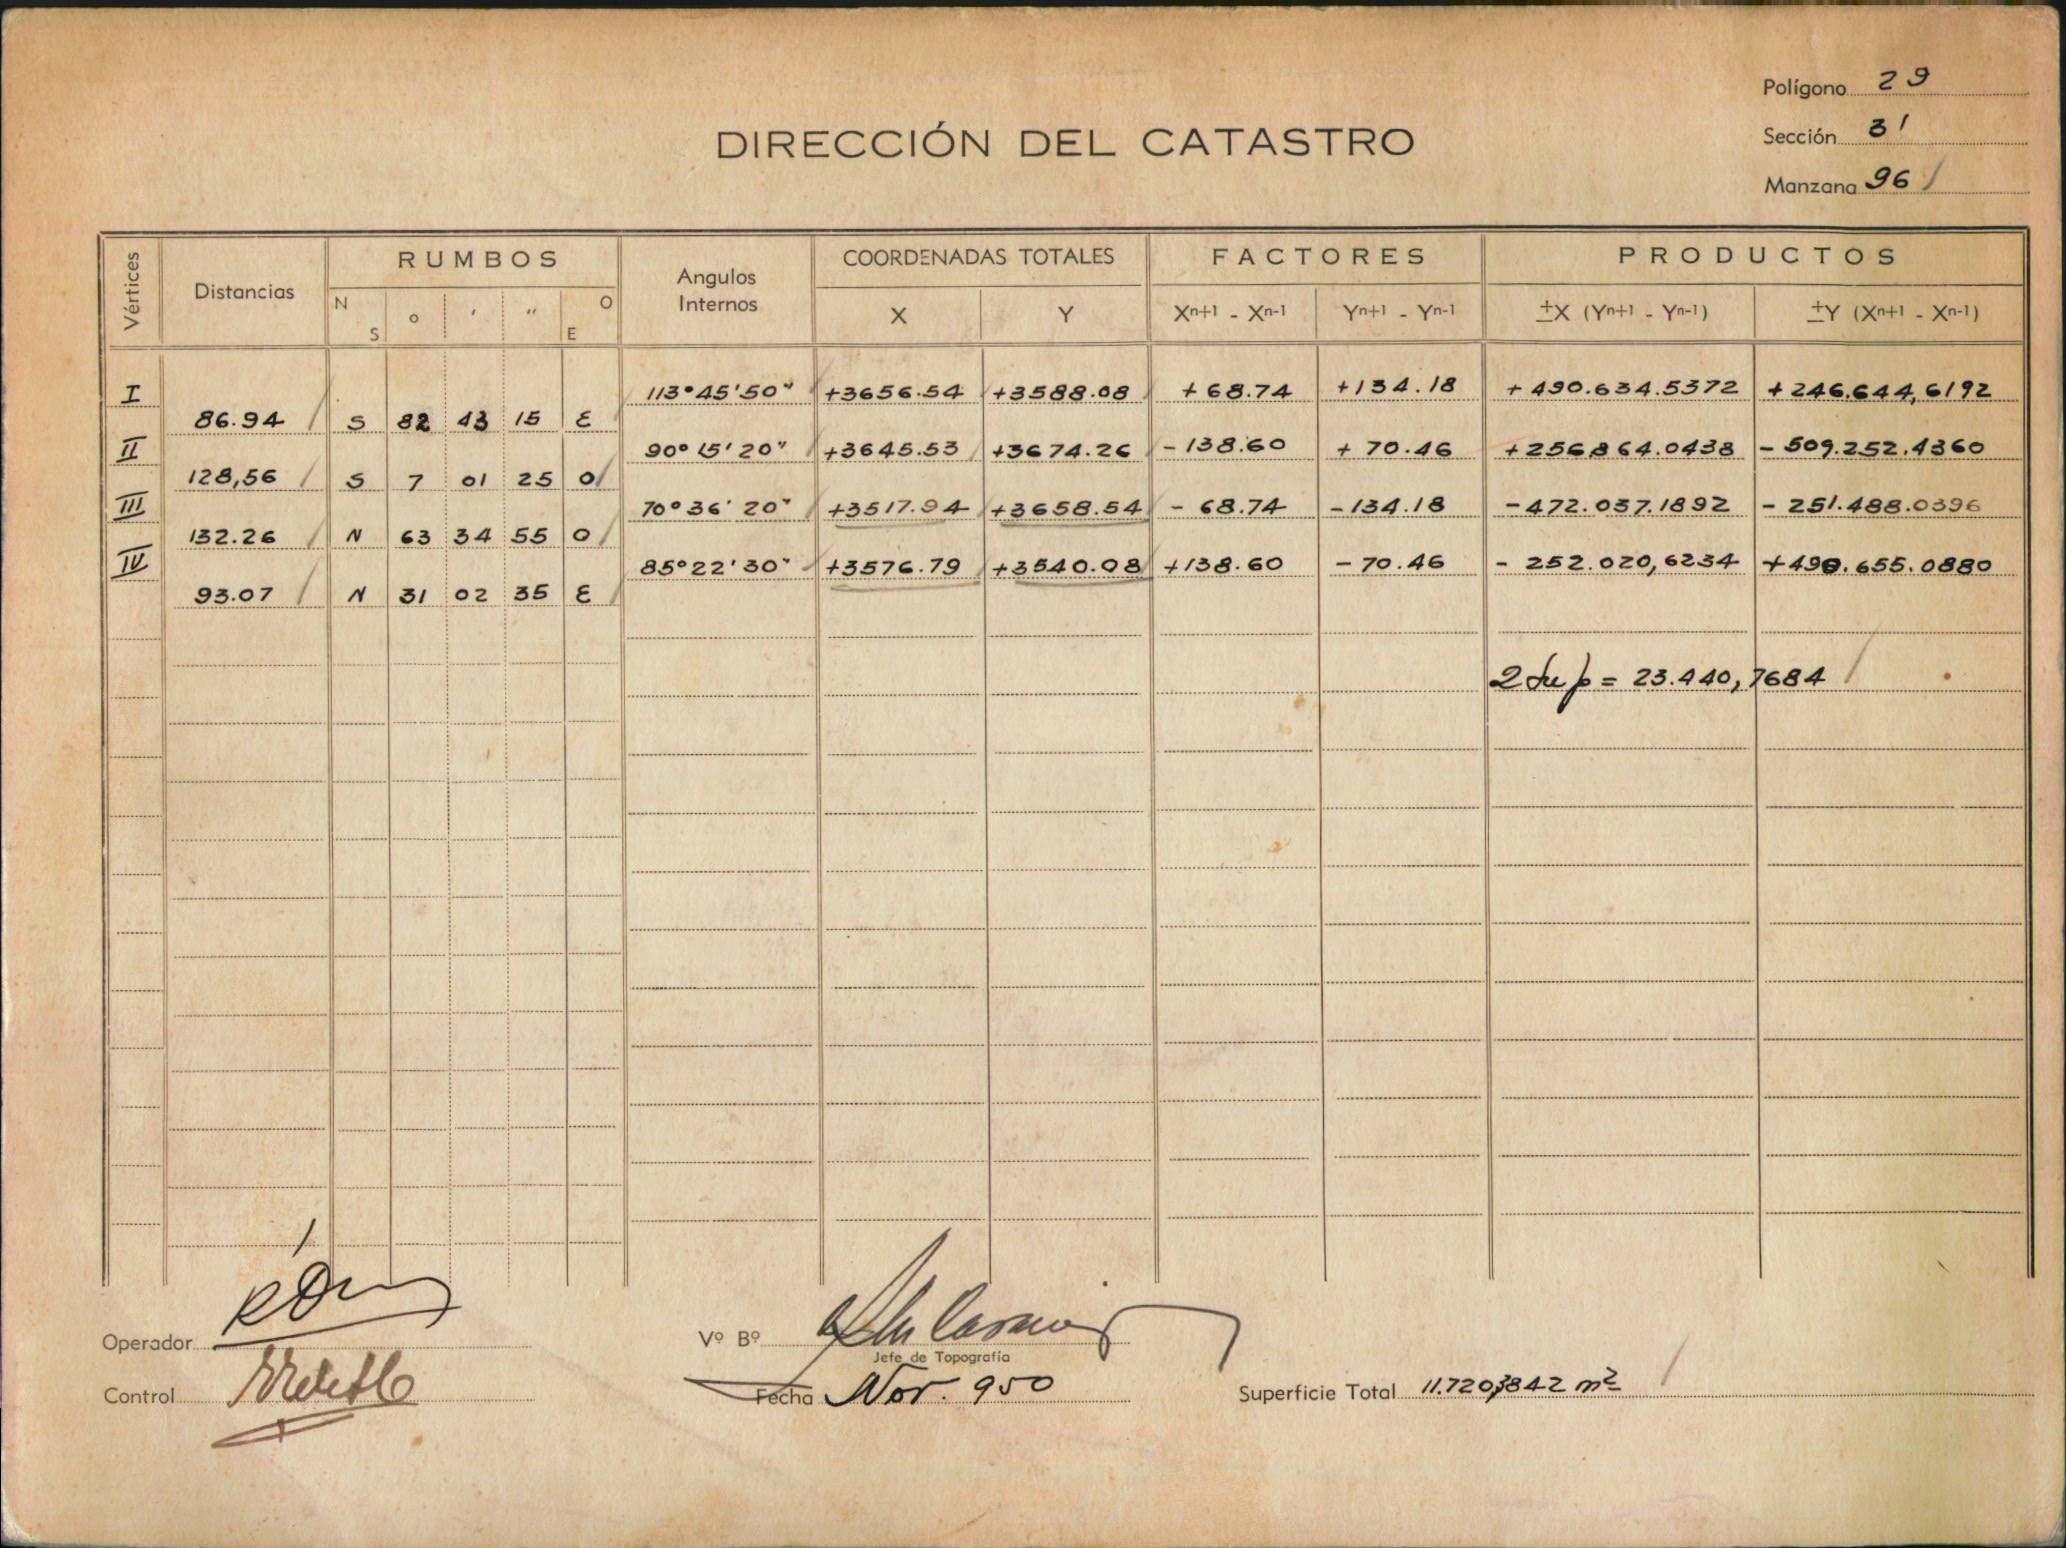 Polígono 29
DIRECCIÓN DEL CATASTRO
Sección 31
Manzana 96
Vértices Distancias RUMBOS Angulos Internos COORDENADAS TOTALES FACTORES PRODUCTOS
N S ° ' " O E X Y Xn+1 - Xn-1 Yn+1 - Yn-1 ±X (Yn+1 - Yn-1) ±Y (Xn+1 - Xn-1)
I 113°45'50" +3656.54 +3588.08 +68.74 +134.18 +490.634.5372 +246.644,6192
86.94 S 82 43 15 E
II 90°15'20" +3645.53 +3674.26 -138.60 +70.46 +256.864.0438 -509.252.4360
128,56 S 7 01 25 O
III 70°36'20" +3517.94 +3658.54 -68.74 -134.18 -472.037.1892 -251.488.0396
132.26 N 63 34 55 O
IV 85°22'30" +3576.79 +3540.08 +138.60 -70.46 -252.020,6234 +490.655.0880
93.07 N 31 02 35 E
2 Sup = 23.440,7684
Operador
Vº Bº
Jefe de Topografía
Control
Fecha Nov. 950
Superficie Total 11.720,3842 m²